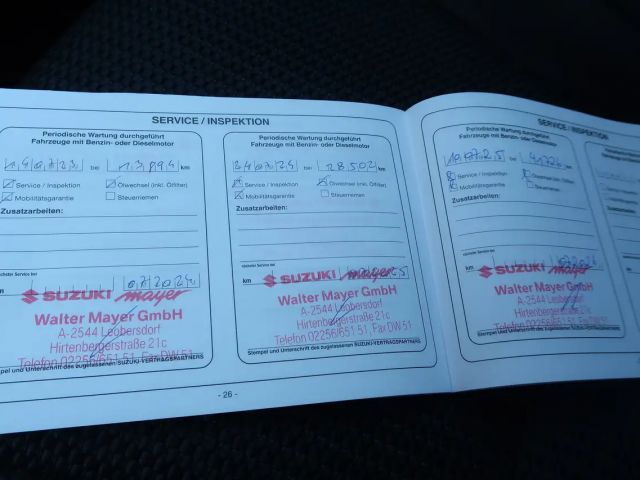 SERVICE / INSPEKTION
Periodische Wartung durchgeführt
Fahrzeuge mit Benzin- oder Dieselmotor
14.07.23 bei 13894 km
Service / Inspektion
Ölwechsel (inkl. Ölfilter)
Mobilitätsgarantie
Steuerriemen
Zusatzarbeiten:
nächster Service bei
km
07.2024
SUZUKI mayer
Walter Mayer GmbH
A-2544 Leobersdorf
Hirtenbergerstraße 21c
Telefon 02256/651 51, Fax DW 51
Stempel und Unterschrift des zugelassenen SUZUKI-VERTRAGSPARTNERS
Periodische Wartung durchgeführt
Fahrzeuge mit Benzin- oder Dieselmotor
24.07.24 bei 28502 km
Service / Inspektion
Ölwechsel (inkl. Ölfilter)
Mobilitätsgarantie
Steuerriemen
Zusatzarbeiten:
nächster Service bei
km
SUZUKI mayer
Walter Mayer GmbH
A-2544 Leobersdorf
Hirtenbergerstraße 21c
Telefon 02256/651 51, Fax DW 51
Stempel und Unterschrift des zugelassenen SUZUKI-VERTRAGSPARTNERS
- 26 -
SERVICE / INSPEKTION
Periodische Wartung durchgeführt
Fahrzeuge mit Benzin- oder Dieselmotor
bei km
Service / Inspektion
Ölwechsel (inkl. Ölfilter)
Mobilitätsgarantie
Steuerriemen
Zusatzarbeiten:
nächster Service bei
km
SUZUKI mayer
Walter Mayer GmbH
A-2544 Leobersdorf
Hirtenbergerstraße 21c
Telefon 02256/651 51, Fax DW 51
Stempel und Unterschrift des zugelassenen SUZUKI-VERTRAGSPARTNERS